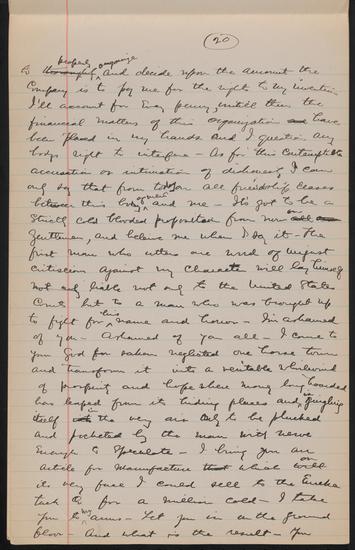 20
properly organize
to thoroughly and decide upon the amount the
Company is to pay me for the right to my invention
I'll account for Every penny untill then the
financial matters of this organization and have
been placed in my hands and I question any
bodys right to interfere — As for this Contemptible
accusation or intimation of dishonesty I can
only say that from today on all friendship ceases
between this body of men and me — Its got to be a
Strictly cold blooded proposition from now on
Gentlemen, and believe me when I say it — The
first man who utters one word of unjust
criticism against my Character will lay himself
not only liable not only to the United States
Courts but to a man who was brought up
to fight for his name and honor — I'm ashamed
of you — Ashamed of you all — I come to
your God for saken neglected one horse town
and transform it into a veritable whirlwind
of prosperity and hope where money long hoarded
has leaped from its hiding places and is jingling
itself in the very air only to be plucked
and pocketed by the man with nerve
Enough to Speculate — I bring you an
article for Manufacture that which on
its very face I could sell to the
for a million cold — I take
you to my arms — Let you in on the ground
floor — And what is the result — You